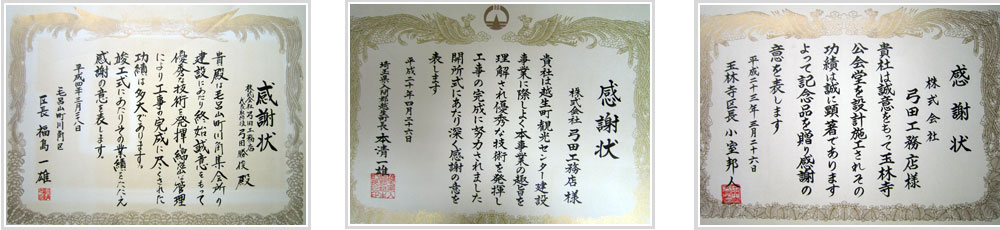 感謝状
株式会社 弓田工務店
弓田勝俊 殿
貴殿は毛呂山町川角集会所の
建設にあたり終始誠意をもって
優秀な技術を発揮し綿密な管理
により工事の完成に尽くされた
功績は多大であります。
竣工式にあたりその貴績をたたえ
感謝の意を表します。
毛呂山町川角区
区長 福島一雄
感謝状
株式会社 弓田工務店様
貴社は越生町観光センター建設
事業に際しよく本事業の趣旨を
理解され優秀な技術を発揮し
工事の完成に努力されました
開所式にあたり深く感謝の意を
表します
平成二十年四月二十六日
埼玉県入間郡越生町長
感謝状
株式会社
弓田工務店様
貴社は誠意をもって玉林寺
公会堂を設計施工されその
功績は誠に顕著であります
よって記念品を贈り感謝の
意を表します
平成二十三年三月二十六日
玉林寺区長 小室邦人